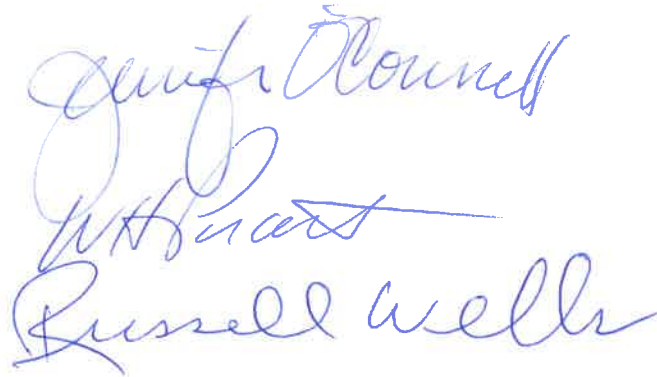 Jennifer O'Connell
WH
Russell Wells